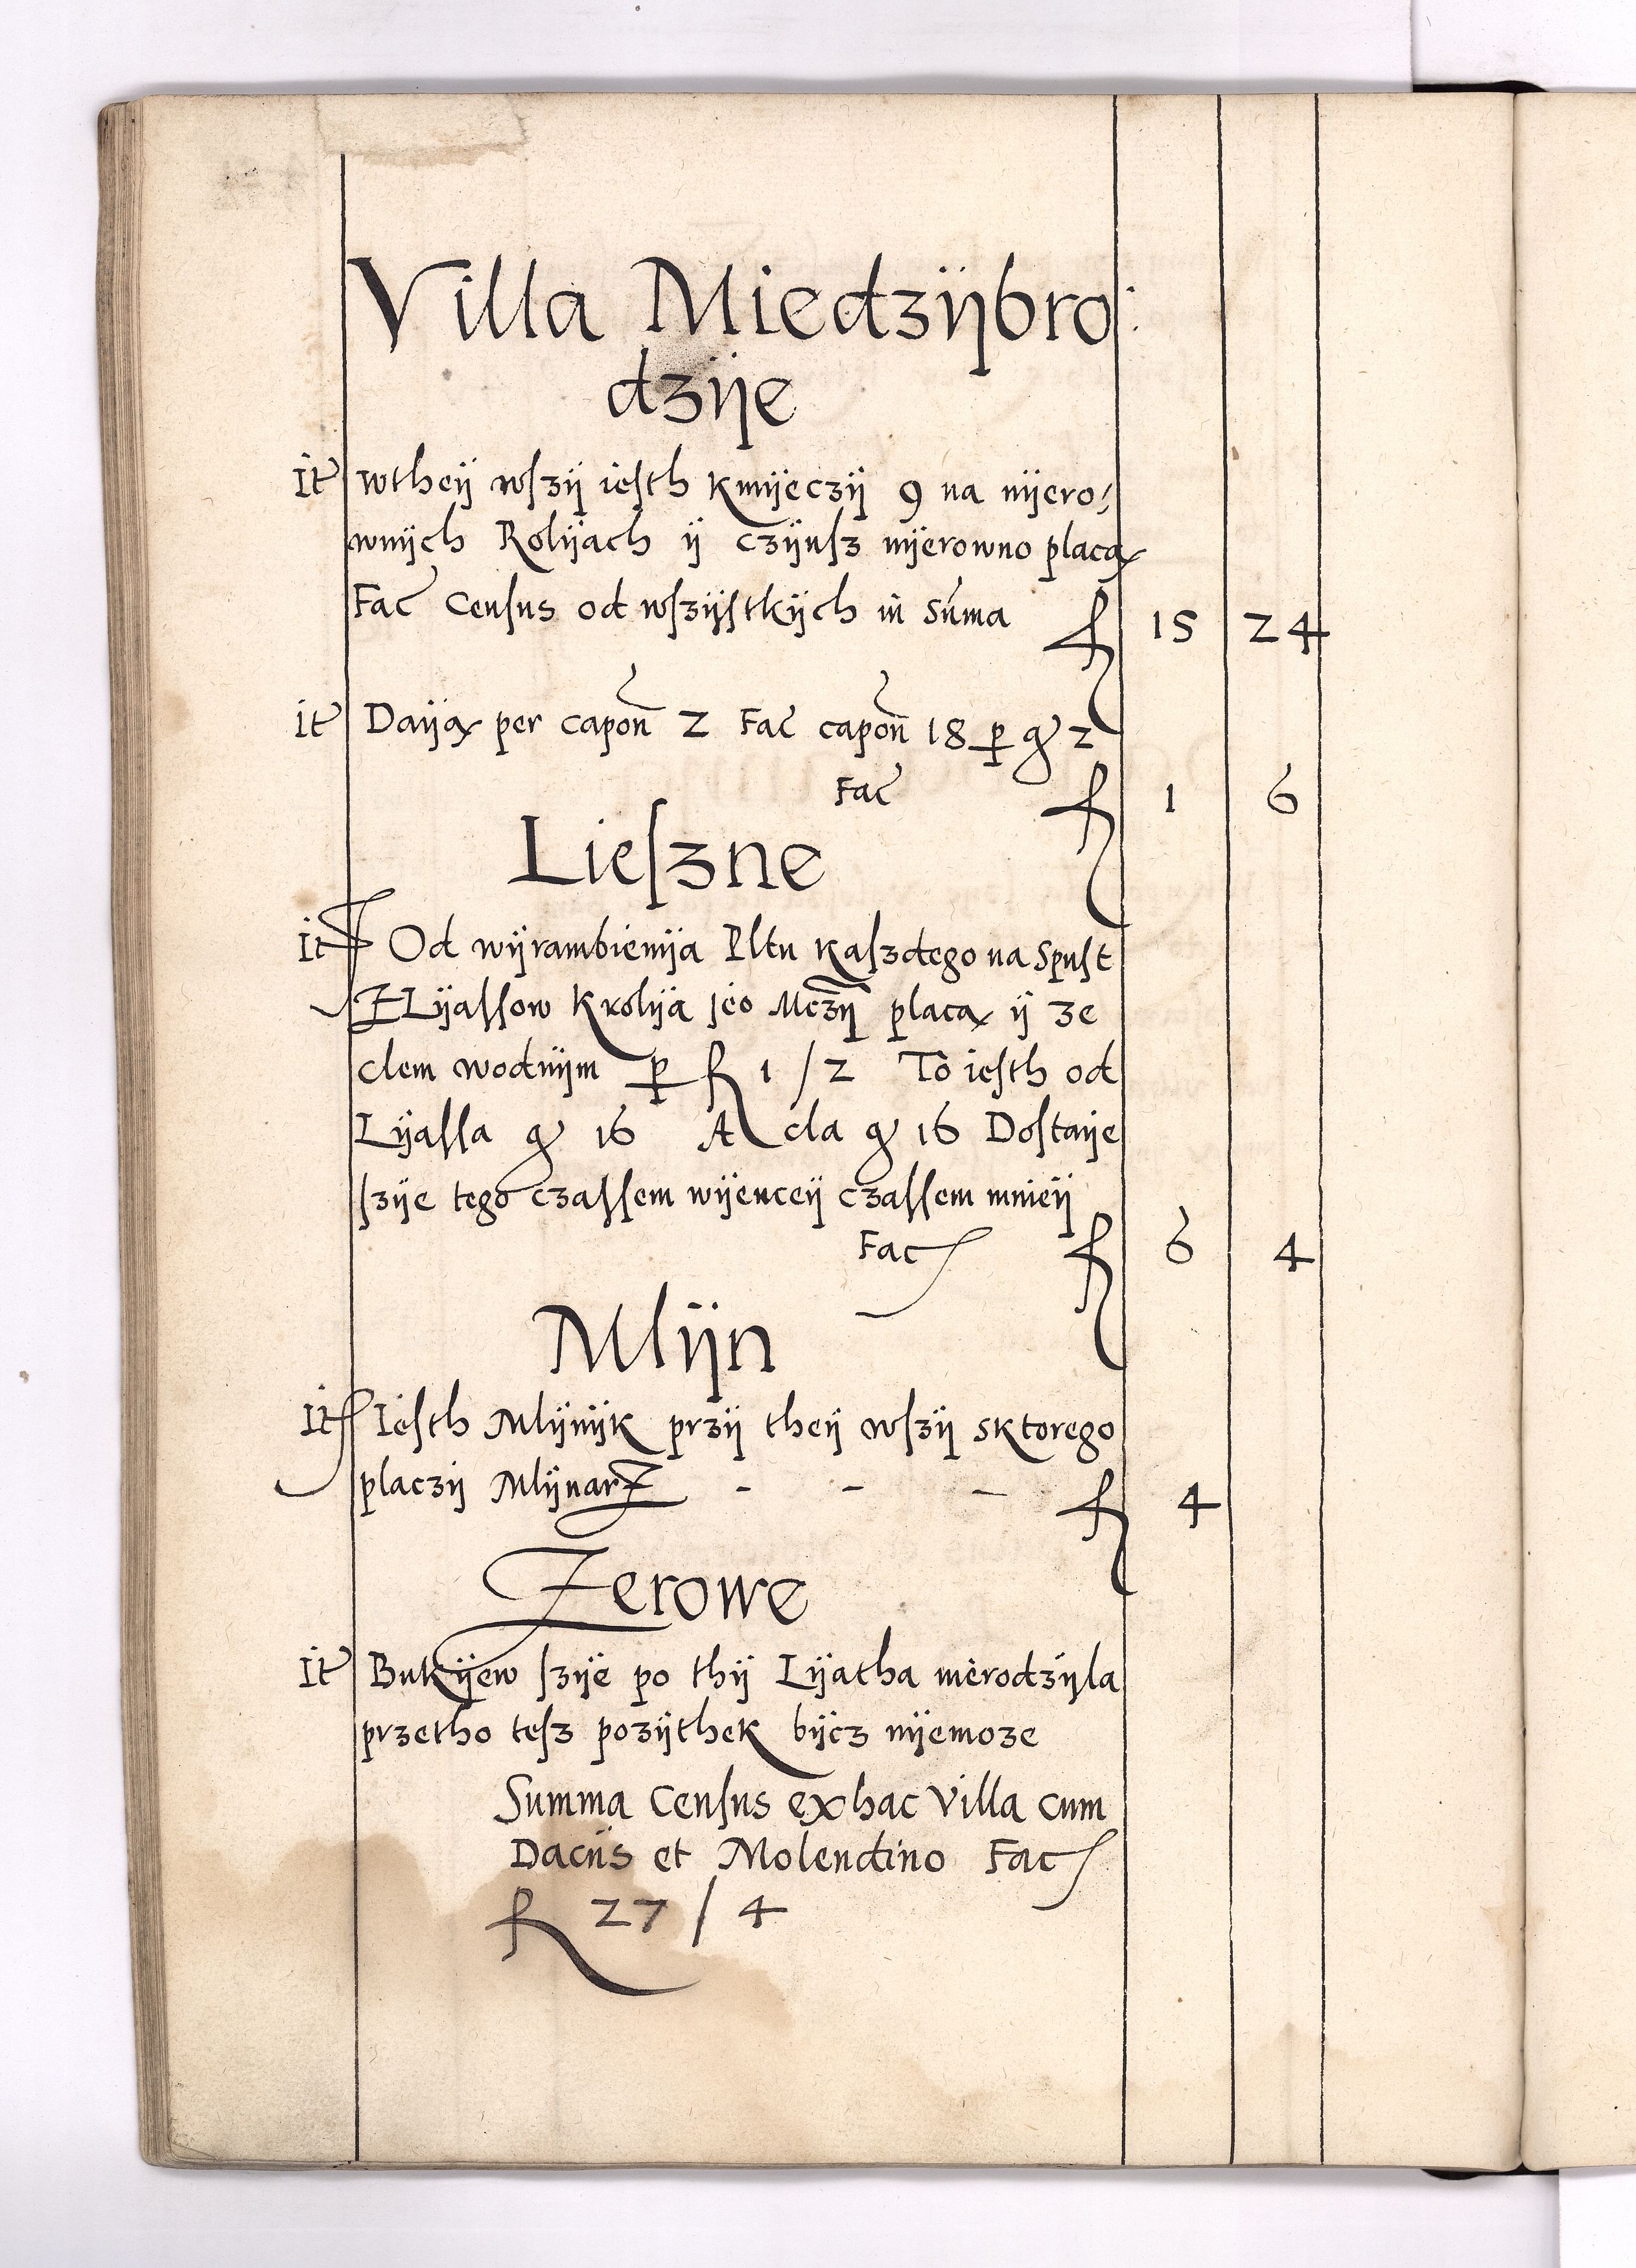 Villa Miedzÿbro:
dzÿe
It Wtheÿ wſzÿ ieſth Kmÿeczÿ 9 na nÿero⸗
wnÿch Rolÿach ÿ czÿnſz nÿerowno placą
Fac Cenſus od wſzÿſtkÿch in Suma fl 15 24
it Daÿą per capon 2 Fac capon 18 p gr 2
Fac fl 1 6
Lieſzne
It Od wÿrambienÿa Pltu Kaſzdego na Spuſt
Z Lÿaſſow Krolÿa jeo Mczÿ placą ÿ ze
clem wodnÿm p fl 1 / 2 To ieſth od
Lÿaſſa gr 16 A cla gr 16 Doſtaÿe
ſzÿe tego czaſſem wÿenceÿ czaſſem mnieÿ
Fac fl 6 4
Mlÿn
It Ieſth Mlÿnÿk przÿ theÿ wſzÿ sktorego
placzÿ MlÿnarZ - - - fl 4
Zerowe
It Bukÿew ſzÿe po thÿ Lÿatha nierodzÿla
przetho teſz pozÿthek bÿcz nÿemoze
Summa Cenſus ex hac Villa cum
Daciis et Molendino Fac
fl 27 / 4